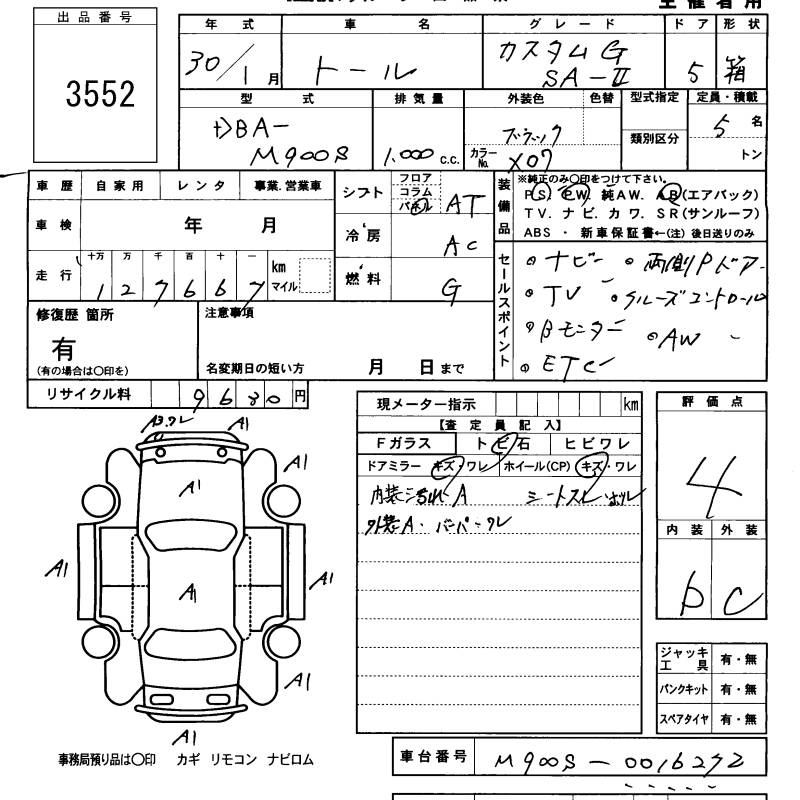 主催者用
出品番号
3552
年式 車名 グレード ドア 形状
30/1月 トール カスタムG SA-Ⅱ 5 箱
型式 排気量 外装色 色替 型式指定 定員・積載
DBA-
M900S 1,000 c.c. ブラック カラーNo. X07 類別区分 5名 トン
車歴 自家用 レンタ 事業.営業車
車検 年 月
走行 十万 万 千 百 十 一 km マイル
127667
シフト フロア コラム パネル AT
冷房 AC
燃料 G
装備品
※純正のみ〇印をつけて下さい。
PS. PW. 純AW. AB(エアバック)
TV. ナビ. カワ. SR(サンルーフ)
ABS ・ 新車保証書←(注) 後日送りのみ
セールスポイント
◎ナビー ◎両側Pドア
◎TV ◎クルーズコントロール
◎Bモニター ◎AW
◎ETC
修復歴 箇所
有
(有の場合は〇印を)
注意事項
名変期日の短い方 月 日まで
リサイクル料 9630円
現メーター指示 km
【査定員記入】
Fガラス トビ石 ヒビワレ
ドアミラー キズ・ワレ ホイール(CP) キズ・ワレ
内装汚れA シートスレ
外装A. バンパーワレ
評価点
4
内装 外装
D C
A3.ワレ A1
A1
A1
A1 A1
A1
A1
A1
ジャッキ工具 有・無
パンクキット 有・無
スペアタイヤ 有・無
事務局預り品は〇印 カギ リモコン ナビロム
車台番号 M900S-0016272